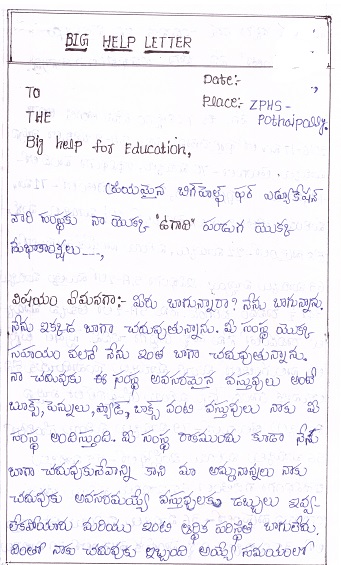 BIG HELP LETTER
Date:-
TO
Place:- ZPHS-
Pothaipally.
THE
Big help for Education,
బిగ్‌హెల్ప్ ఫర్ ఎడ్యుకేషన్
వారి సంస్థకు నా యొక్క "ఉగాది" పండుగ యొక్క
శుభాకాంక్షలు.....,
విషయం ఏమనగా:- మీరు బాగున్నారా? నేను బాగున్నాను.
నేను ఇక్కడ బాగా చదువుతున్నాను. మీ సంస్థ యొక్క
సహాయం వలనే నేను ఇంత బాగా చదువుతున్నాను.
నా చదువుకు ఈ సంస్థ అవసరమైన వస్తువులు అంటే
బుక్స్, పెన్నులు, ప్యాడ్, బాక్స్ వంటి వస్తువులు నాకు మీ
సంస్థ అందిస్తుంది. మీ సంస్థ రాకముందు కూడా నేను
బాగా చదువుకునేవాన్ని కాని మా అమ్మనాన్నలు నాకు
చదువుకు అవసరమయ్యే వస్తువులకు డబ్బులు ఇవ్వ-
లేకపోయారు మరియు ఇంటి ఆర్థిక పరిస్థితి బాగులేదు.
దింతో నాకు చదువుకు ఇబ్బంది అయ్యే సమయంలో